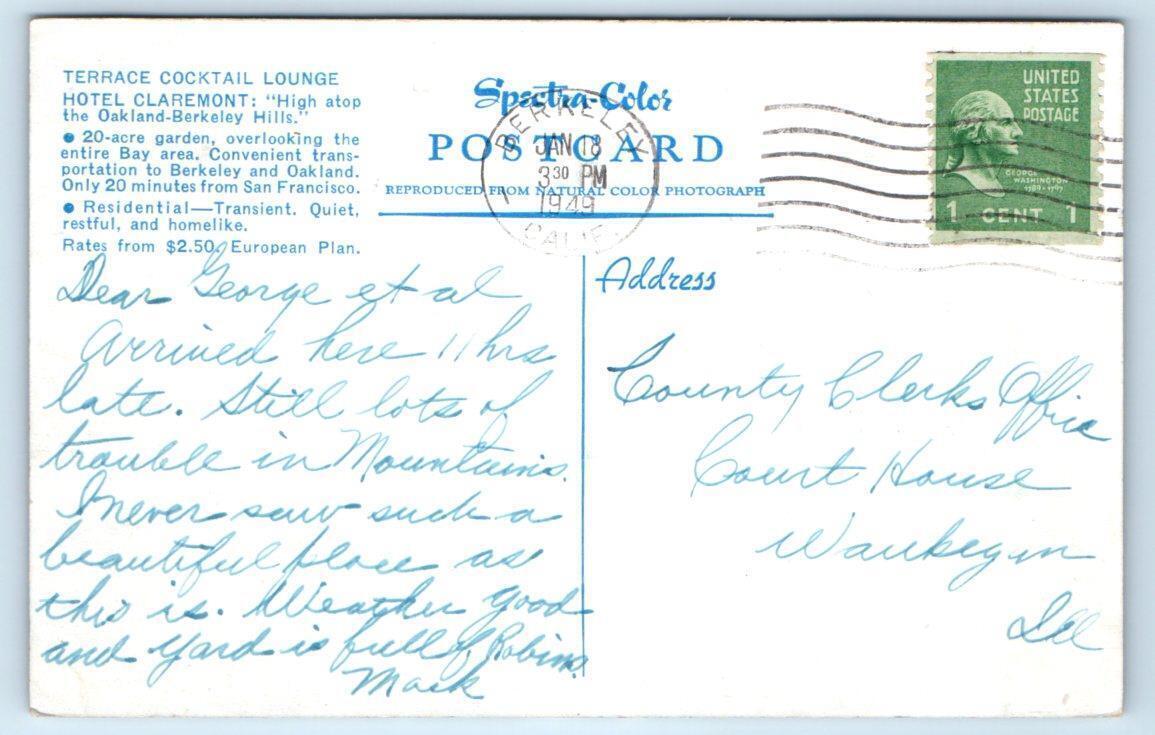 TERRACE COCKTAIL LOUNGE
HOTEL CLAREMONT: "High atop
the Oakland-Berkeley Hills."
● 20-acre garden, overlooking the
entire Bay area. Convenient trans-
portation to Berkeley and Oakland.
Only 20 minutes from San Francisco.
● Residential—Transient. Quiet,
restful, and homelike.
Rates from $2.50. European Plan.
Spectra-Color
POST CARD
REPRODUCED FROM NATURAL COLOR PHOTOGRAPH
BERKELEY
JAN 18
3 30 PM
1949
CALIF.
1
UNITED
STATES
POSTAGE
GEORGE
WASHINGTON
1789-1797
1 CENT 1
Dear George et al
Arrived here 11 hrs
late. Still lots of
trouble in Mountains.
I never saw such a
beautiful place as
this is. Weather good
and yard is full of Robins.
Mack
Address
County Clerks Office
Court House
Waukegan
Ill